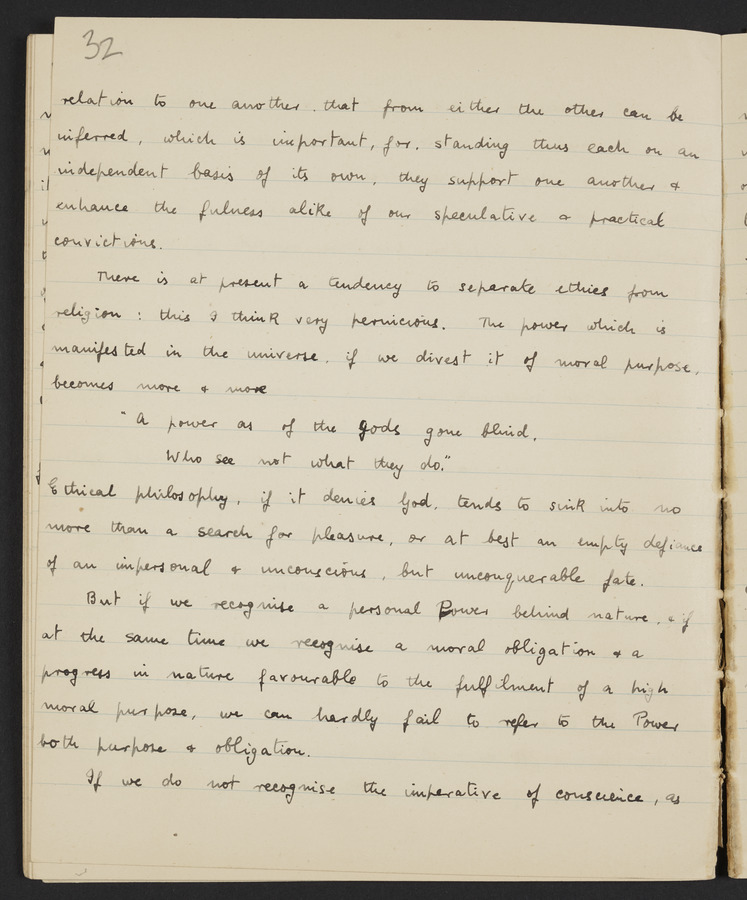 32
relation to one another. that from either the other can be
inferred, which is important, for, standing thus each on an
independent basis of its own, they support one another &
enhance the fulness alike of our speculative & practical
convictions.
There is at present a tendency to separate ethics from
religion: this I think very pernicious. The power which is
manifested in the universe, if we divest it of moral purpose,
becomes more & more
"A power as of the gods gone blind,
Who see not what they do."
Ethical philosophy, if it denies God, tends to sink into no
more than a search for pleasure, or at best an empty defiance
of an impersonal & unconscious, but unconquerable fate.
But if we recognise a personal Power behind nature, & if
at the same time we recognise a moral obligation & a
progress in nature favourable to the fulfilment of a high
moral purpose, we can hardly fail to refer to the Power
both purpose & obligation.
If we do not recognise the imperative of conscience, as